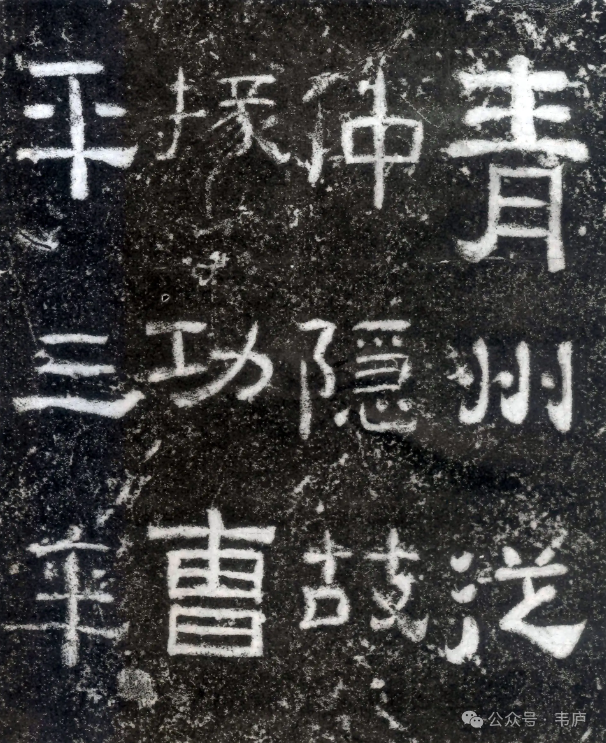 青州從
仲隱故
掾功曹
平三年
公众号·韦庐